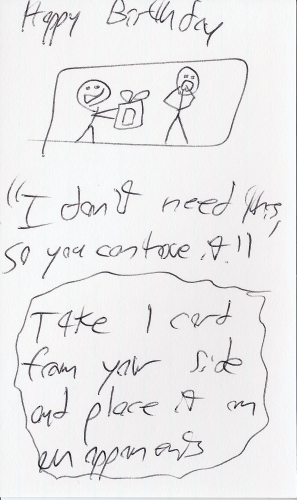 Happy Birthday
"I don't need this,
so you can have it!"
Take 1 card
from your side
and place it on
an opponents